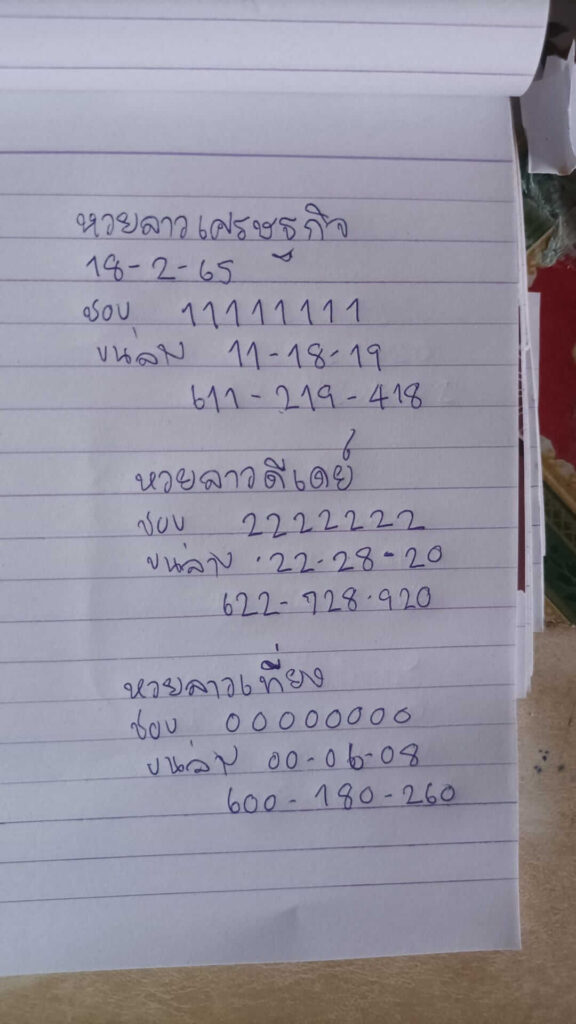 หวยลาวเศรษฐกิจ
18-2-65
ชอบ 11111111
บนล่าง 11-18-19
611-219-418
หวยลาวดีเดย์
ชอบ 2222222
บนล่าง 22-28-20
622-728-920
หวยลาวเที่ยง
ชอบ 00000000
บนล่าง 00-06-08
600-180-260